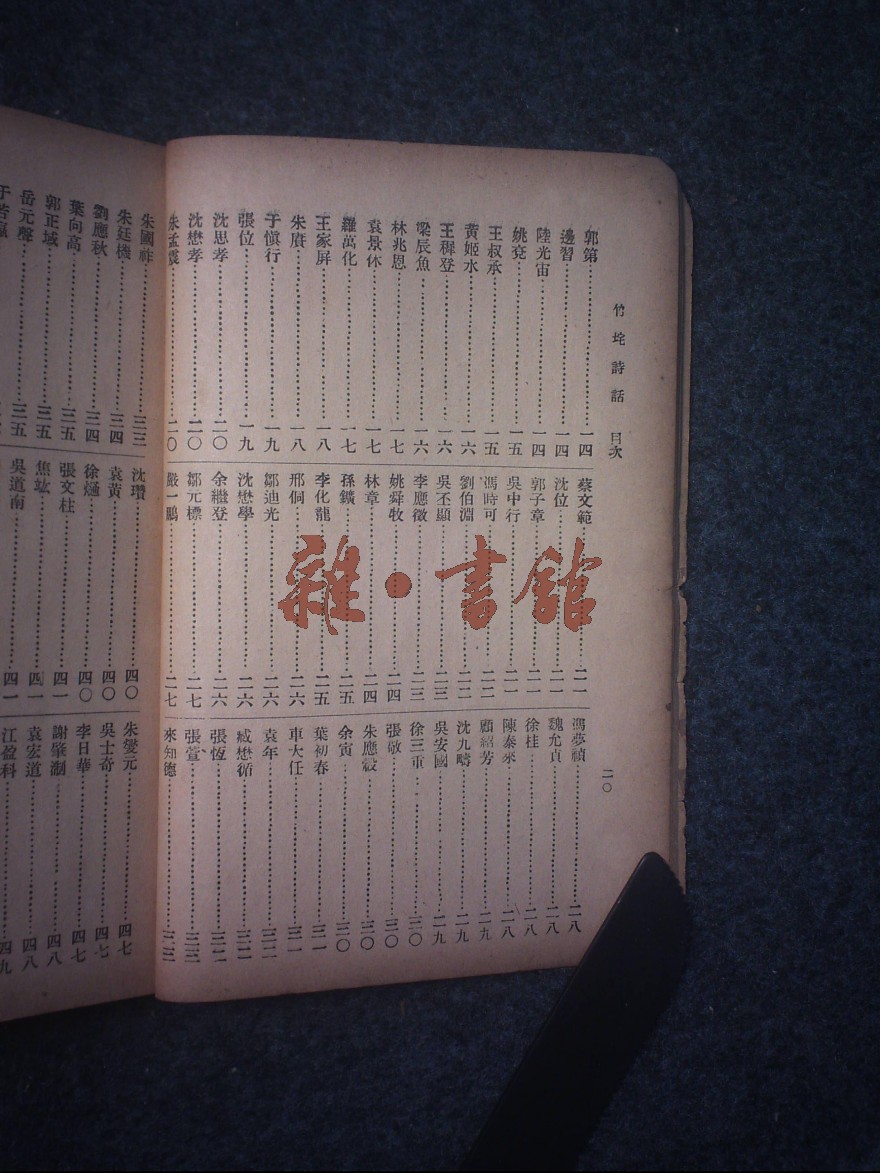 竹垞詩話 目次
二〇
郭第 一四
邊習 一四
陸光宙 一四
姚兗 一五
王叔承 一五
黃姬水 一六
王穉登 一六
梁辰魚 一六
林兆恩 一七
袁景休 一七
羅萬化 一七
王家屏 一八
朱賡 一八
于愼行 一九
張位 一九
沈思孝 二〇
沈懋孝 二〇
朱孟震 二〇
蘇文範 二一
沈位 二一
郭子章 二一
吳中行 二一
馮時可 二二
劉伯淵 二二
吳丕顯 二三
李應徵 二三
姚舜牧 二四
林章 二四
孫鑛 二五
李化龍 二五
邢侗 二六
鄒迪光 二六
沈懋學 二六
余繼登 二六
鄒元標 二七
嚴一鵬 二七
馮夢禎 二八
魏允貞 二八
徐桂 二八
陳泰來 二八
顧紹芳 二九
沈九疇 二九
吳安國 二九
徐三重 三〇
張敬 三〇
朱應轂 三〇
余寅 三〇
葉初春 三一
車大任 三一
袁年 三二
臧懋循 三二
張恆 三二
張萱 三三
來知德 三三
朱國祚 三三
朱廷機 三四
劉應秋 三四
葉向高 三五
郭正域 三五
岳元聲 三五
于若瀛
沈瓚 四〇
袁黃 四〇
徐𤊹 四〇
張文柱 四一
焦竑 四一
吳道南 四一
朱燮元 四七
吳士奇 四七
李日華 四七
謝肇淛 四八
袁宏道 四八
江盈科 四九
雜·書館